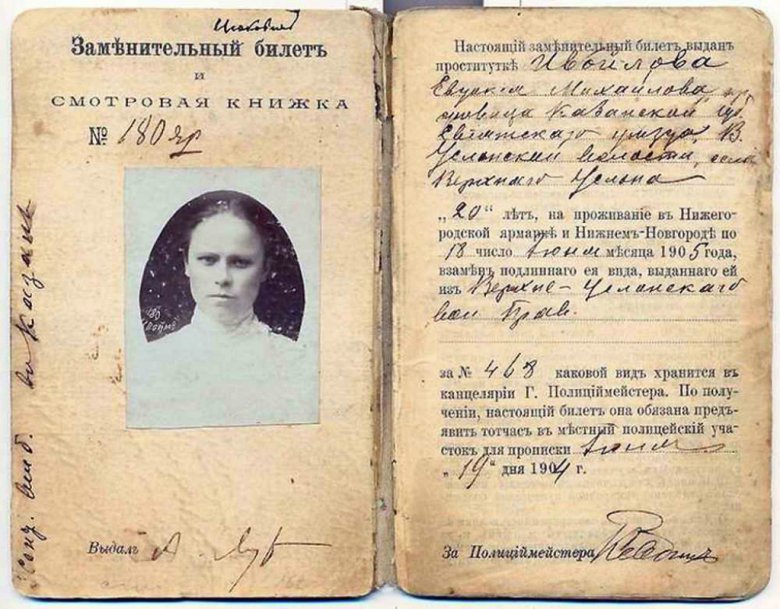 Замѣнительный билетъ
и
СМОТРОВАЯ КНИЖКА
№ 180 яр
Выдалъ А.
Настоящій замѣнительный билетъ выданъ
проституткѣ Ивойлова
Михайлова
Казанской
уѣзда, В.
Услонской волости, села
Верхняго Услона
„20“ лѣтъ, на проживаніе въ Нижего-
родской ярмаркѣ и Нижнемъ-Новгородѣ по
18 число Іюня мѣсяца 1905 года,
взамѣнъ подлиннаго ея вида, выданнаго ей
изъ Верхне-Услонскаго
вол Прав.
за № 468 каковой видъ хранится въ
канцеляріи Г. Полиціймейстера. По полу-
ченіи, настоящій билетъ она обязана предъ-
явить тотчасъ въ мѣстный полицейскій уча-
стокъ для прописки Іюня
„19“ дня 1904 г.
За Полиціймейстера